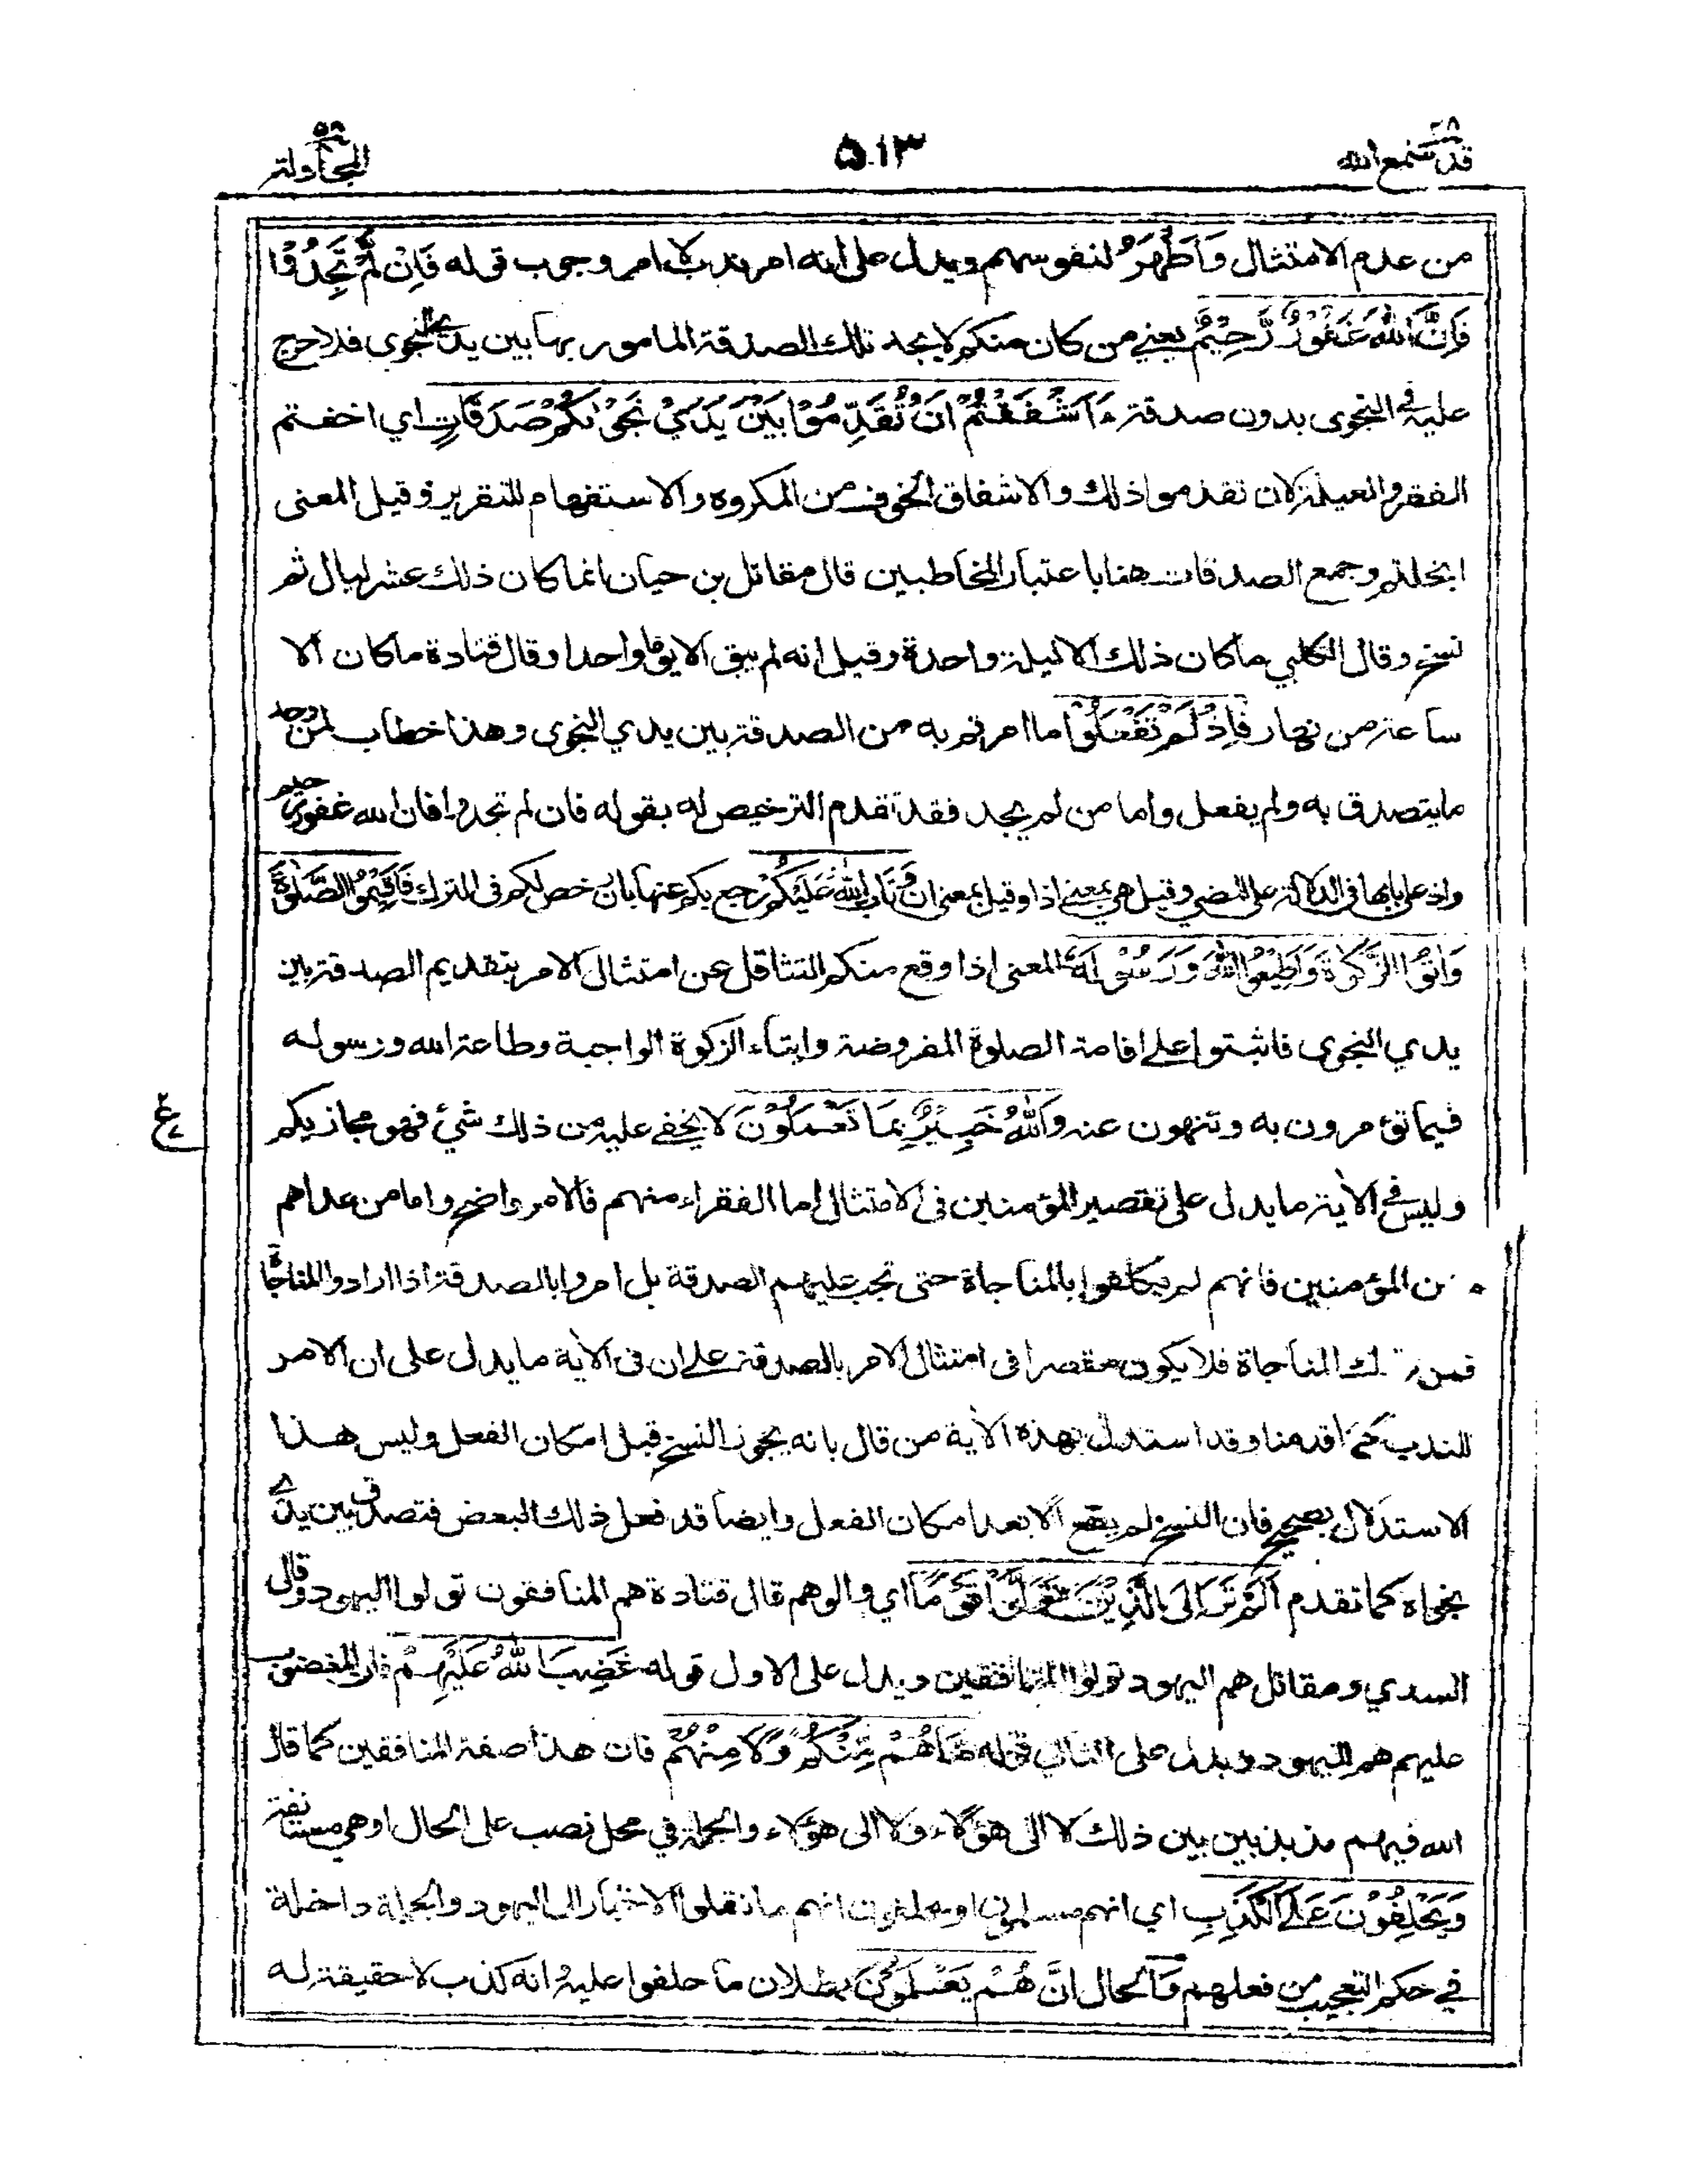 قد سمع الله ٢٨
٥١٣
المجادلة ٥٨
من عدم الامتثال وَاَطْهَرُ لنفوسهم ويدل على انه امر ندب لا امر وجوب قوله فَاِنْ لَّمْ تَجِدُوْا
فَاِنَّ اللّٰهَ غَفُوْرٌ رَّحِيْمٌ يعني من كان منكم لا يجد تلك الصدقة المامور بها بين يدي النجوى فلا حرج
عليه في النجوى بدون صدقة ءَاَشْفَقْتُمْ اَنْ تُقَدِّمُوْا بَيْنَ يَدَيْ نَجْوٰىكُمْ صَدَقَاتٍ اي اخفتم
الفقر والعيلة لان تقدموا ذلك والاشفاق الخوف من المكروه والاستفهام للتقرير وقيل المعنى
ابخلتم وجمع الصدقات هنا باعتبار المخاطبين قال مقاتل بن حيان انما كان ذلك عشر ليال ثم
نسخ وقال الكلبي ما كان ذلك الا ليلة واحدة وقيل انه لم يبق الا يوما واحدا وقال قتادة ما كان الا
ساعة من نهار فَاِذْ لَمْ تَفْعَلُوْا ما امرتم به من الصدقة بين يدي النجوى وهذا خطاب لمن وجد
ما يتصدق به ولم يفعل واما من لم يجد فقد تقدم الترخيص له بقوله فان لم تجدوا فان الله غفور رحيم
واذ على بابها في الدلالة على المضي وقيل هي بمعنى اذا وقيل بمعنى ان وَتَابَ اللّٰهُ عَلَيْكُمْ رجع بكم عنها بان رخص لكم في الترك فَاَقِيْمُوا الصَّلٰوةَ
وَاٰتُوا الزَّكٰوةَ وَاَطِيْعُوا اللّٰهَ وَرَسُوْلَهٗ المعنى اذا وقع منكم التثاقل عن امتثال الامر بتقديم الصدقة بين
يدي النجوى فاثبتوا على اقامة الصلوة المفروضة وايتاء الزكوة الواجبة وطاعة الله ورسوله
فيما تؤمرون به وتنهون عنه وَاللّٰهُ خَبِيْرٌۢ بِمَا تَعْمَلُوْنَ لا يخفى عليه من ذلك شيء فهو مجازيكم
ع
وليس في الاٰية ما يدل على تقصير المؤمنين في الامتثال اما الفقراء منهم فالامر واضح واما من عداهم
من المؤمنين فانهم لم يكلفوا بالمناجاة حتى تجب عليهم الصدقة بل امروا بالصدقة اذا ارادوا المناجاة
فمن ترك المناجاة فلا يكون مقصرا في امتثال الامر بالصدقة على ان في الاٰية ما يدل على ان الامر
للندب كما قدمنا وقد استدل بهذه الاٰية من قال بانه يجوز النسخ قبل امكان الفعل وليس هذا
الاستدلال بصحيح فان النسخ لم يقع الا بعد امكان الفعل وايضا قد فعل ذلك البعض فتصدق بين يدي
نجواه كما تقدم اَلَمْ تَرَ اِلَى الَّذِيْنَ تَوَلَّوْا قَوْمًا اي والوهم قال قتادة هم المنافقون تولوا اليهود وقال
السدي ومقاتل هم اليهود تولوا المنافقين ويدل على الاول قوله غَضِبَ اللّٰهُ عَلَيْهِمْ فان المغضوب
عليهم هم اليهود ويدل على الثاني قوله مَا هُمْ مِّنْكُمْ وَلَا مِنْهُمْ فان هذا صفة المنافقين كما قال
الله فيهم مذبذبين بين ذلك لا الى هؤلاء ولا الى هؤلاء والجملة في محل نصب على الحال او هي مستانفة
وَيَحْلِفُوْنَ عَلَى الْكَذِبِ اي انهم مسلمون او يحلفون انهم ما نقلوا الاخبار الى اليهود والجملة داخلة
في حكم التعجيب من فعلهم وَ الحال انَّ هُمْ يَعْلَمُوْنَ بطلان ما حلفوا عليه وانه كذب لا حقيقة له